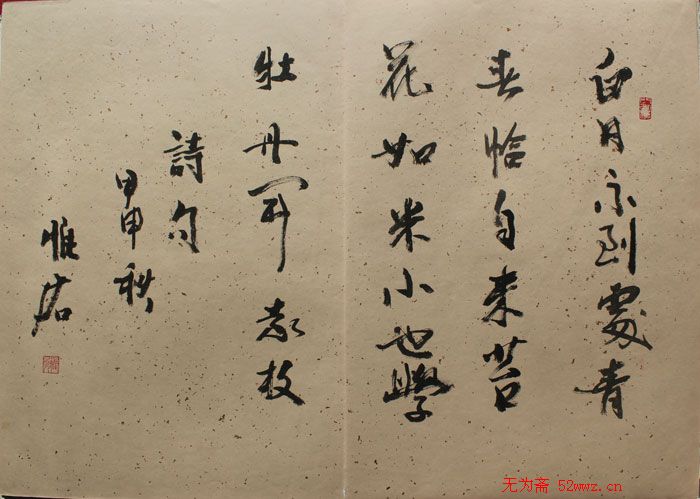 白日不到處青
春恰自来苔
花如米小也學
牡丹開 袁枚
詩句
甲申秋
无为斋 52wwz.cn